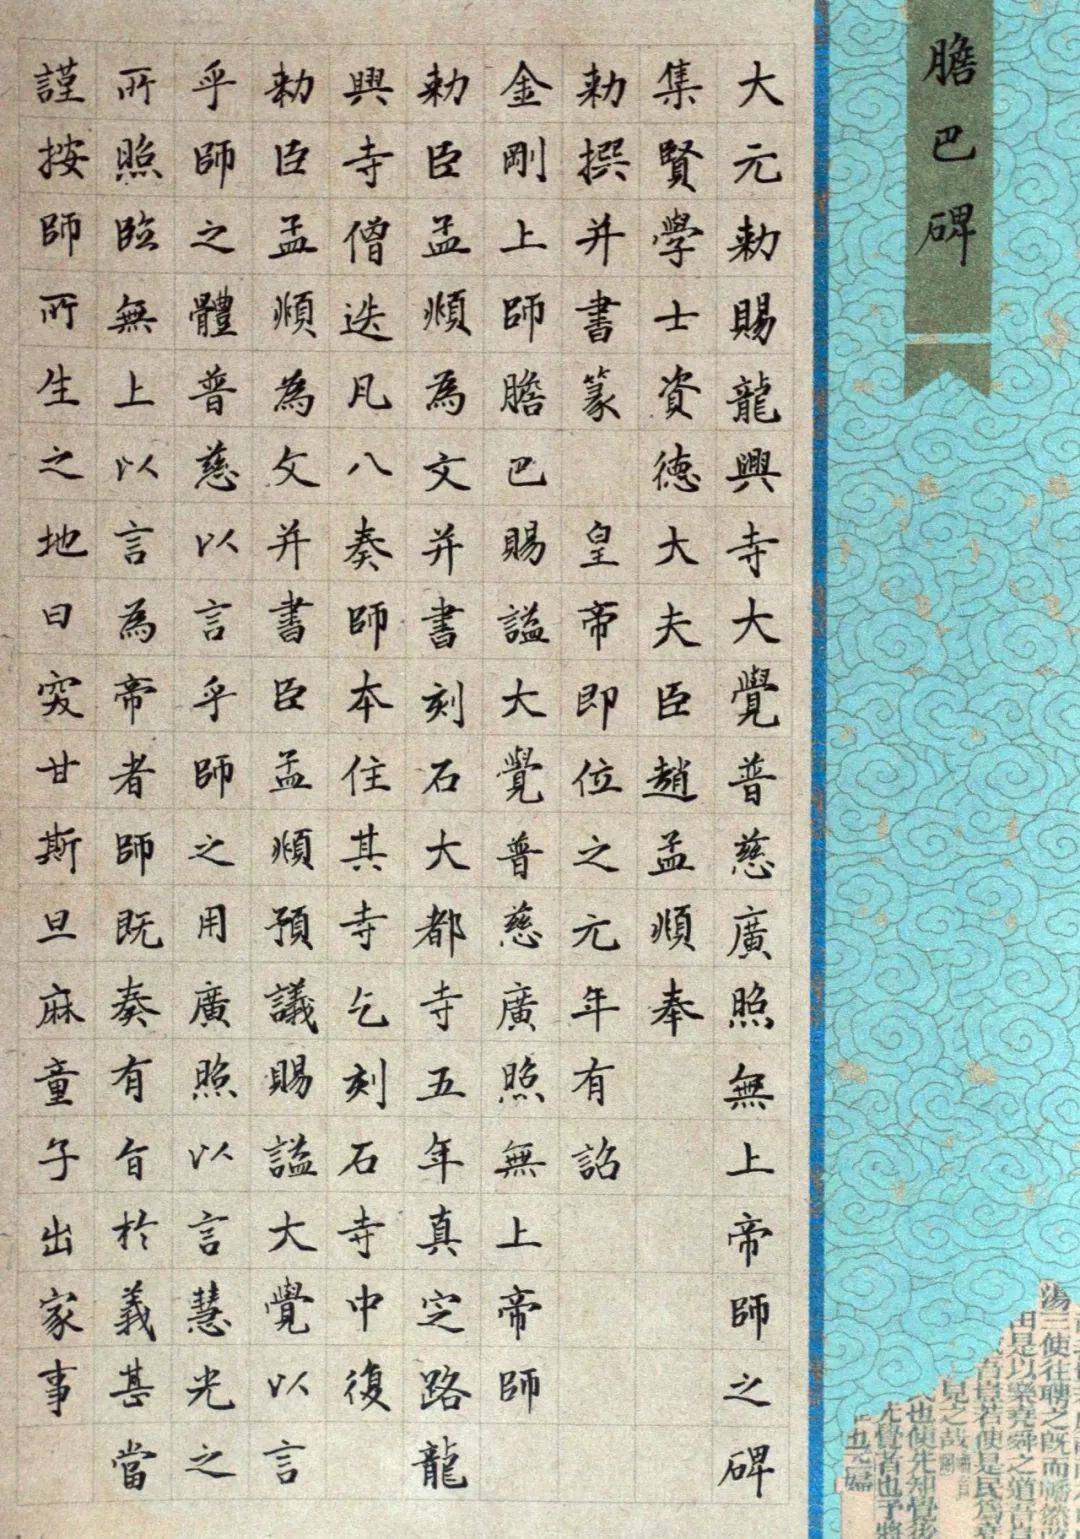 膽巴碑
大元勅賜龍興寺大覺普慈廣照無上帝師之碑
集賢學士資德大夫臣趙孟頫奉
勅撰并書篆 皇帝即位之元年有詔
金剛上師膽巴賜謚大覺普慈廣照無上帝師
勅臣孟頫為文并書刻石大都寺五年真定路龍
興寺僧迭凡八奏師本住其寺乞刻石寺中復
勅臣孟頫為文并書臣孟頫預議賜謚大覺以言
乎師之體普慈以言乎師之用廣照以言慧光之
所照臨無上以言為帝者師既奏有旨於義甚當
謹按師所生之地曰突甘斯旦麻童子出家事
湯三使往聘之既而幡然
由是以樂堯舜之道吾
吾豈若使是民為
見之哉
也使先知覺後
先覺者也予將